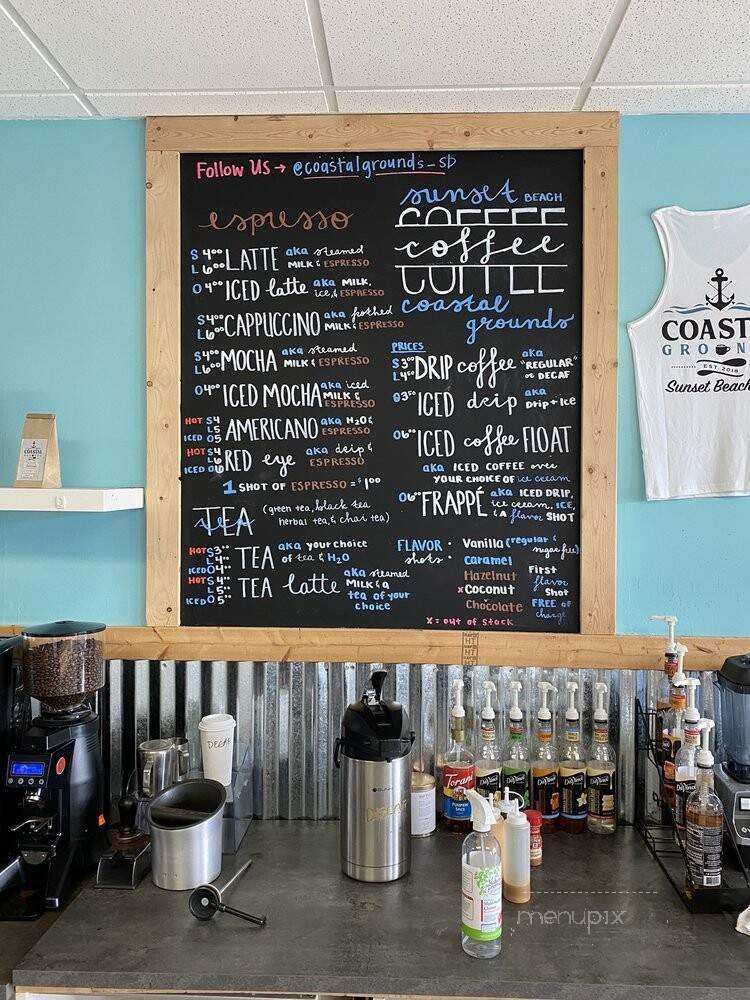 Follow Us → @coastalgrounds_sb
espresso
S 4⁰⁰ L 6⁰⁰ LATTE aka steamed MILK & ESPRESSO
O 4⁰⁰ ICED latte aka MILK, ice, & ESPRESSO
S 4⁰⁰ L 6⁰⁰ CAPPUCCINO aka frothed MILK & ESPRESSO
S 4⁰⁰ L 6⁰⁰ MOCHA aka steamed MILK & ESPRESSO
O 4⁰⁰ ICED MOCHA aka iced MILK & ESPRESSO
HOT S 4 L 5 ICED O 5 AMERICANO aka H2O & ESPRESSO
HOT S 4 L 6 ICED O 6 RED eye aka drip & ESPRESSO
1 SHOT OF ESPRESSO = $1⁰⁰
TEA (green tea, black tea
herbal tea, & chai tea)
HOT S 3⁰⁰ L 4⁰⁰ ICED O 4⁰⁰ TEA aka your choice of tea & H2O
HOT S 4⁰⁰ L 5⁰⁰ ICED O 5⁰⁰ TEA latte aka steamed MILK & a tea of your choice
sunset BEACH
COFFEE
coffee
coastal
grounds
PRICES
S 3⁰⁰ L 4⁵⁰ DRIP coffee aka "REGULAR" or DECAF
O 3⁵⁰ ICED drip aka Drip + Ice
O 6⁰⁰ ICED coffee FLOAT
aka ICED COFFEE over
YOUR CHOICE OF ice cream
O 6⁰⁰ FRAPPÉ aka ICED DRIP, ice cream, ICE, & A flavor SHOT
FLAVOR shots: Vanilla (regular & sugar free)
Caramel
Hazelnut
x Coconut
Chocolate
First flavor Shot FREE of charge
x = out of stock
COAST
GROUN
EST. 2018
Sunset Beach
COASTAL
DECAF
DECAF
Torani
PUMPKIN SPICE
DaVinci
DaVinci
DaVinci
DaVinci
DaVinci
menupix